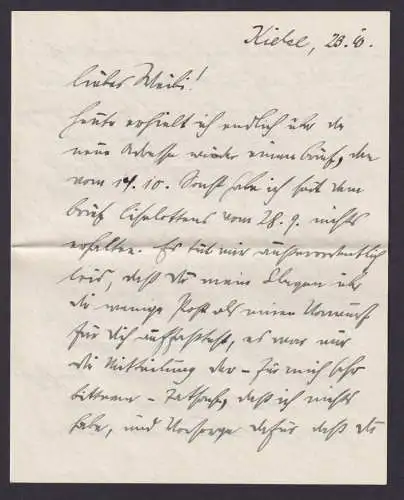 Kielce, 23.10.
Liebes Weibi!
Heute erhielt ich endlich über die
neue Adresse wieder einen Brief, den
vom 14.10. Sonst habe ich seit dem
Brief Liselottens vom 28.9. nichts
erhalten. Es tut mir außerordentlich
leid, daß Du meine Klagen über
die wenige Post als einen Vorwurf
für Dich auffaßtest, es war nur
die Mitteilung der – für mich sehr
bitteren – Tatsache, daß ich nichts
habe, und Vorsorge dafür daß Du